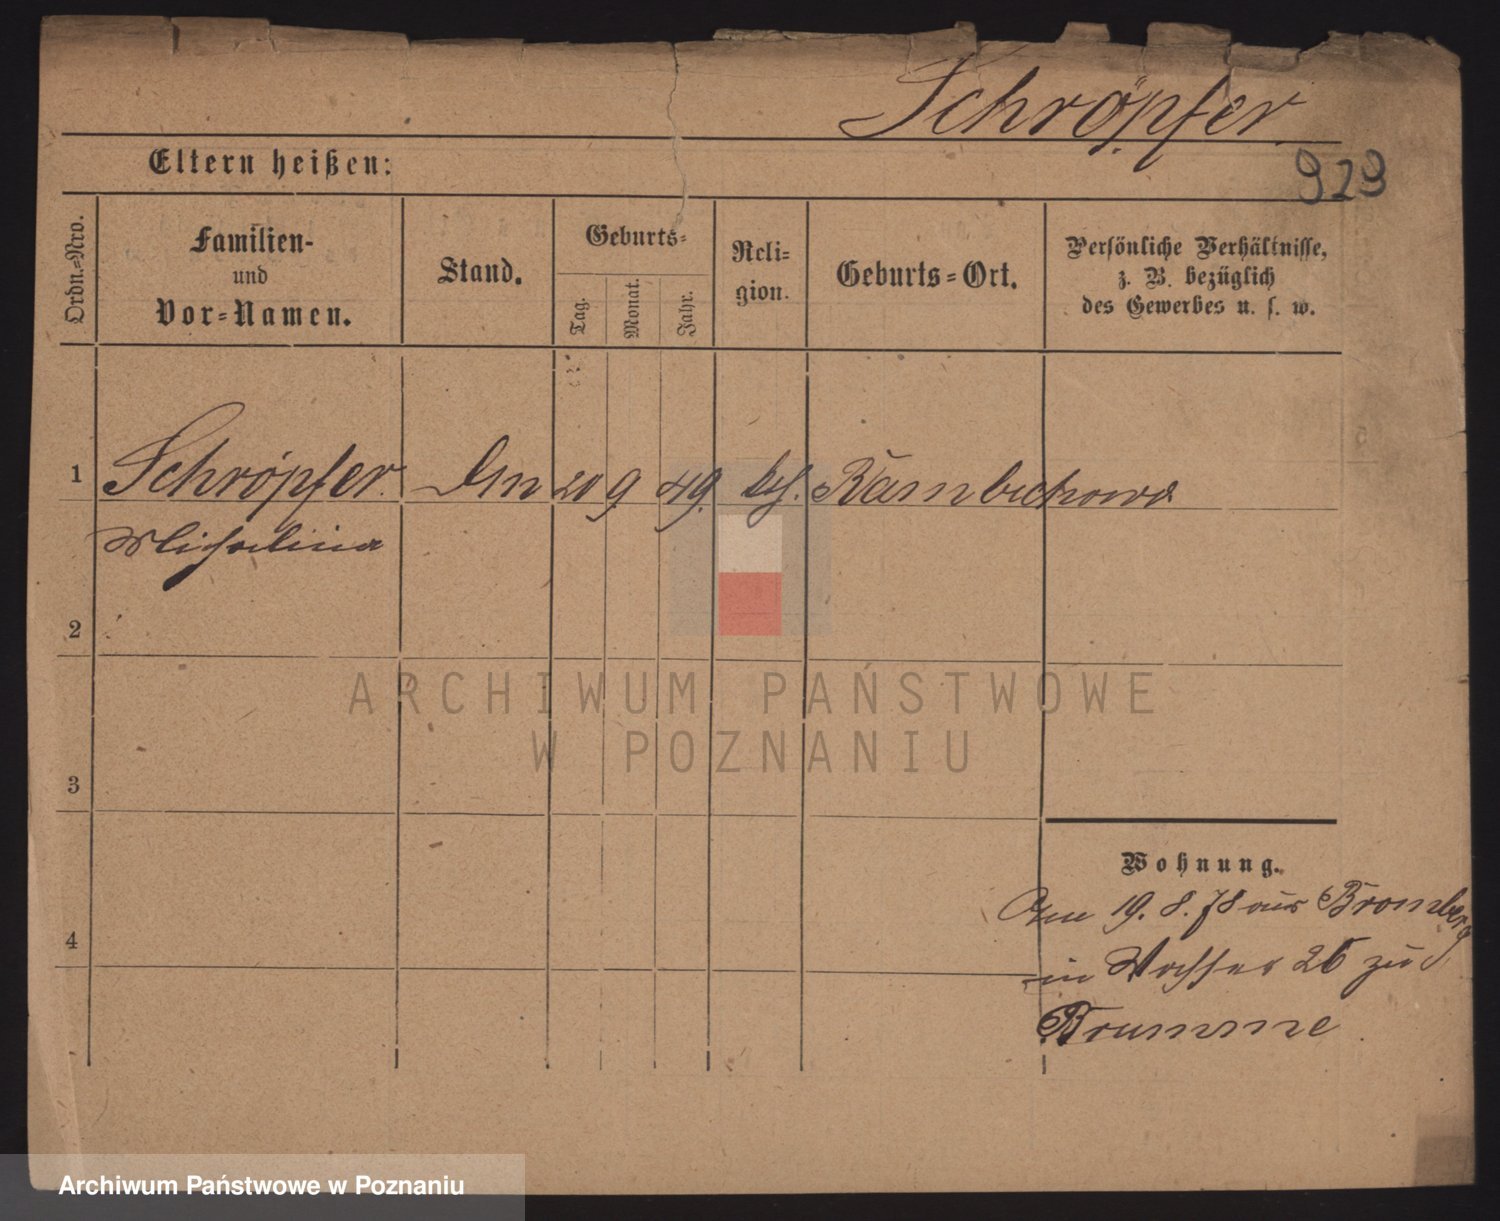 Schröpfer
Eltern heißen:
929
Ordn.-Nro.
Familien-
und
Vor-Namen.
Stand.
Geburts-
Tag.
Monat.
Jahr.
Reli-
gion.
Geburts-Ort.
Persönliche Verhältnisse,
z. B. bezüglich
des Gewerbes u. s. w.
1 Schröpfer 20 9 49.
Michalina
2
ARCHIWUM PAŃSTWOWE
W POZNANIU
3
Wohnung.
19. 8. 78 aus Bromberg
in 26 zu
4
Brumme
Archiwum Państwowe w Poznaniu